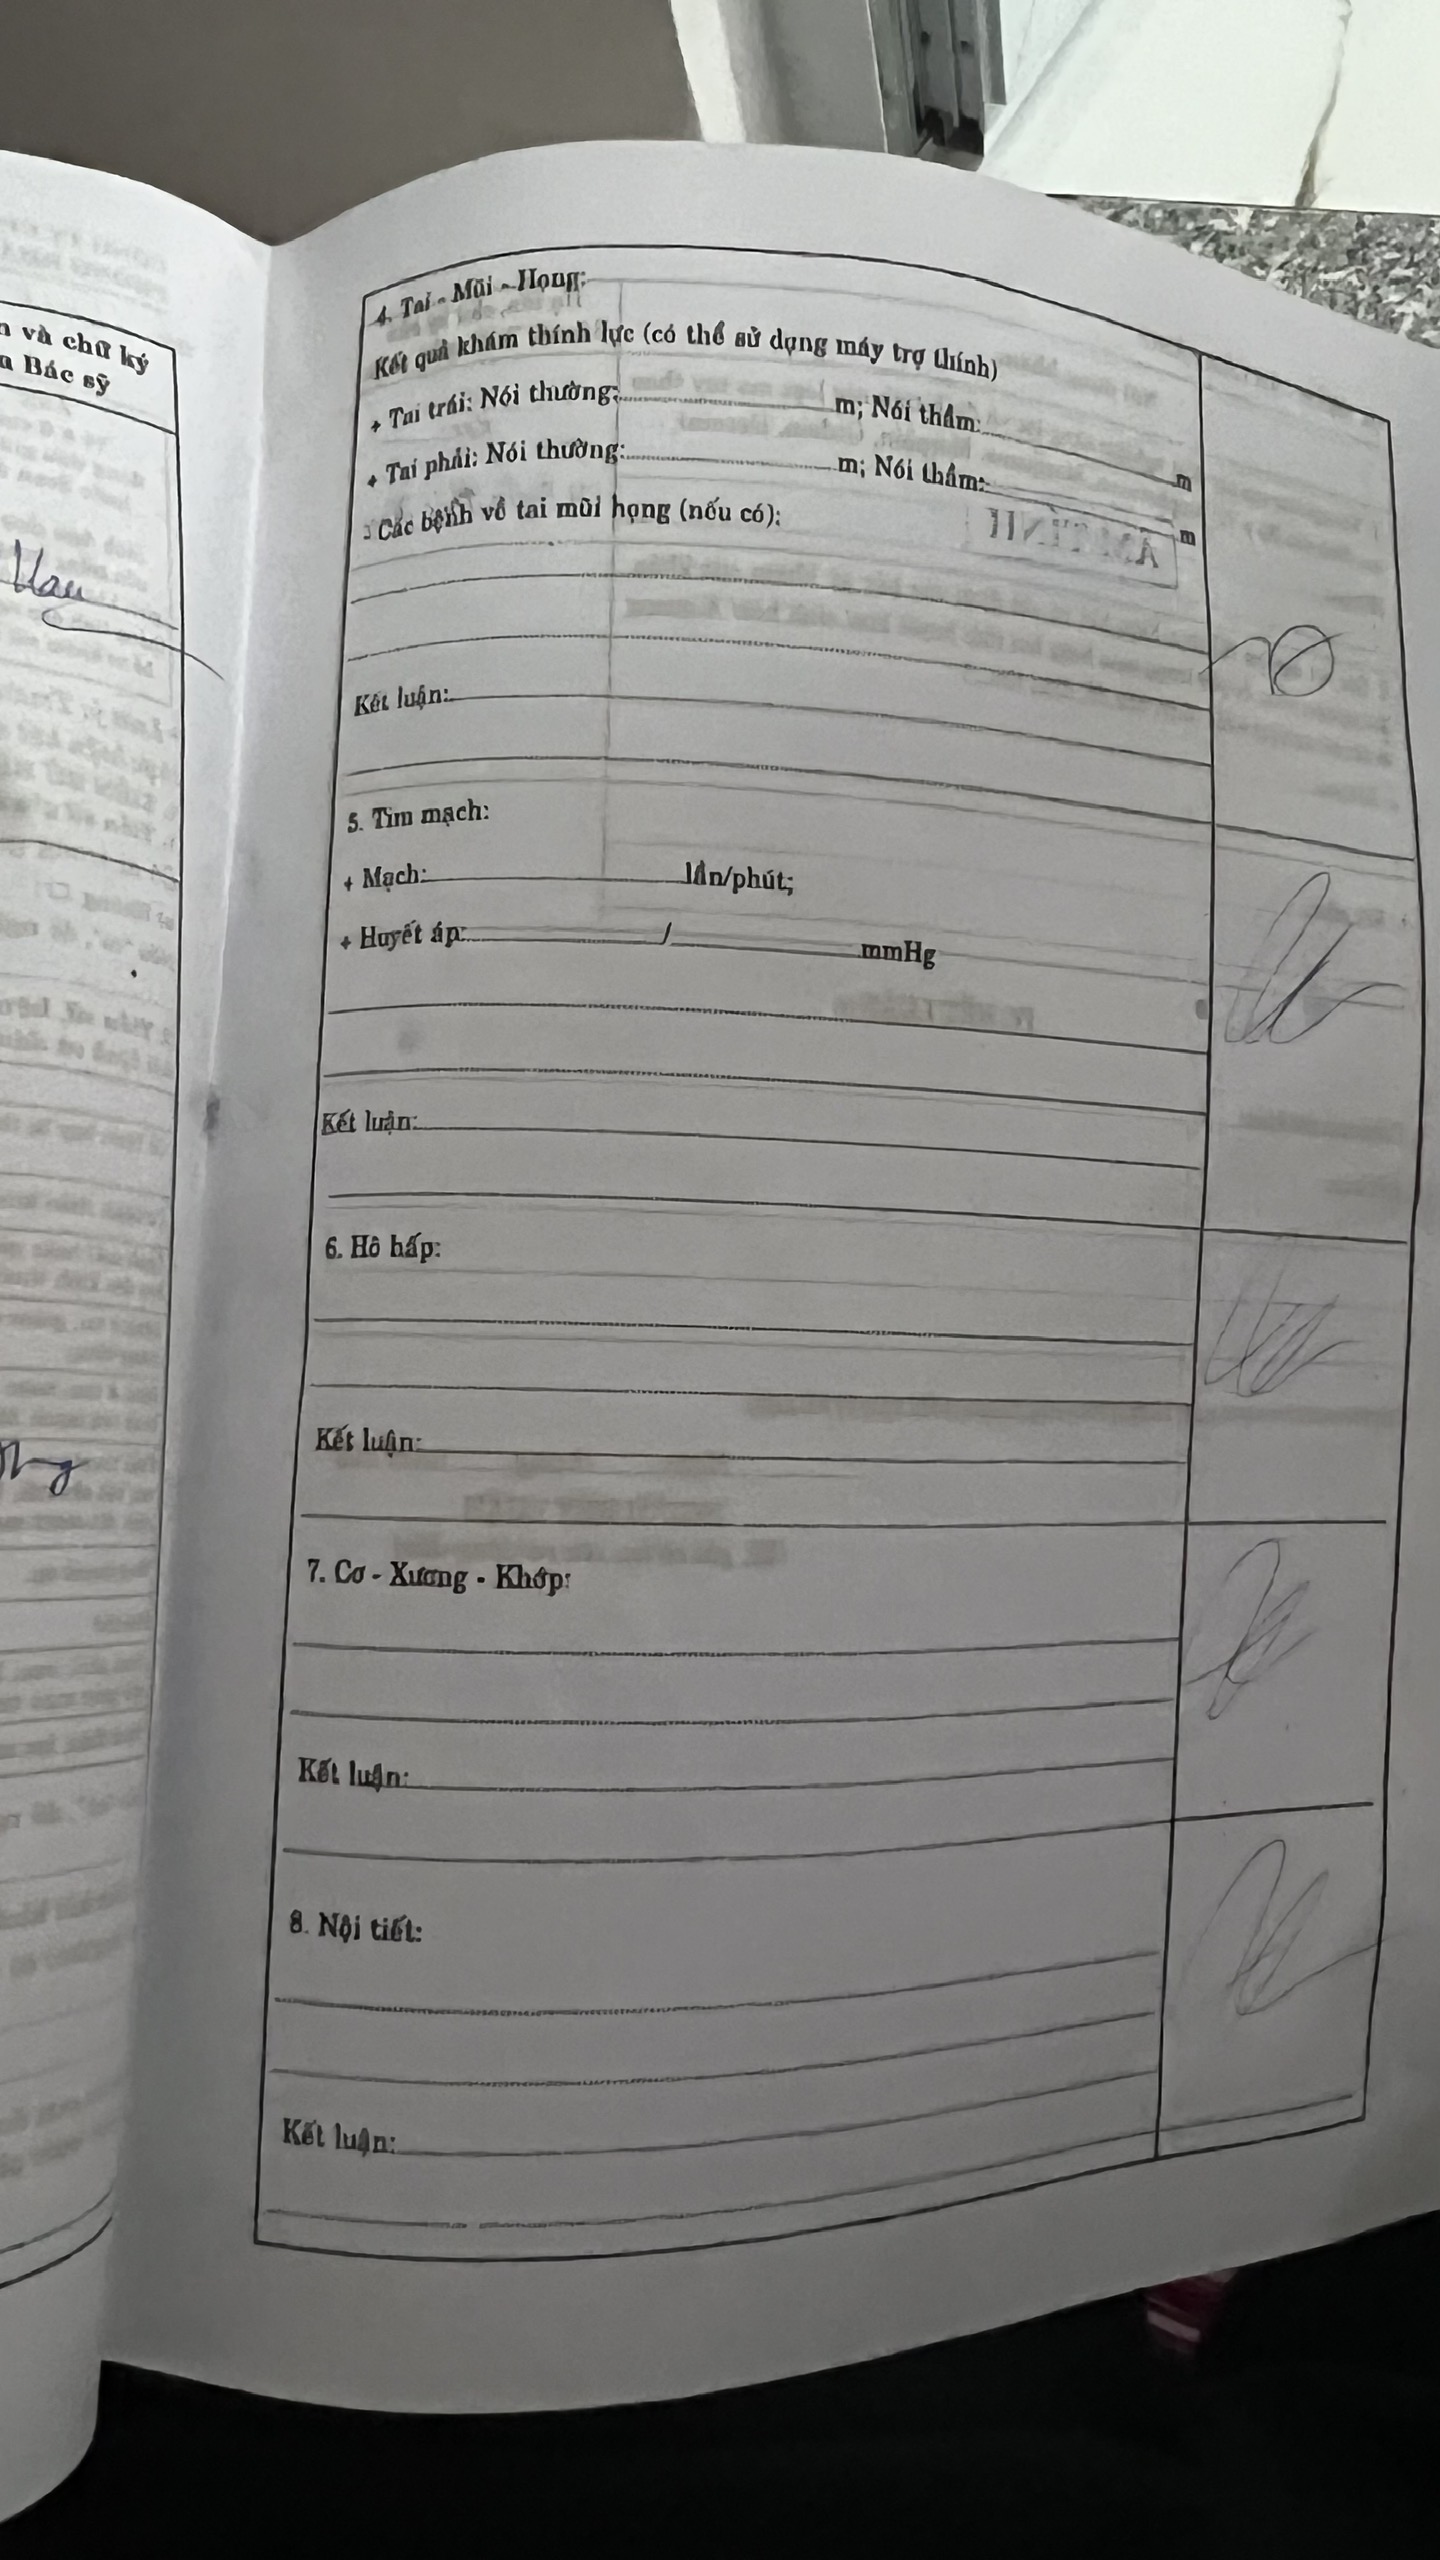 và chữ ký
Bác sỹ
4. Tai - Mũi - Họng:
Kết quả khám thính lực (có thể sử dụng máy trợ thính)
+ Tai trái: Nói thường: m; Nói thầm: m
+ Tai phải: Nói thường: m; Nói thầm: m
Các bệnh về tai mũi họng (nếu có):
Kết luận:
5. Tim mạch:
+ Mạch: lần/phút;
+ Huyết áp: / mmHg
Kết luận:
6. Hô hấp:
Kết luận:
7. Cơ - Xương - Khớp:
Kết luận:
8. Nội tiết:
Kết luận: